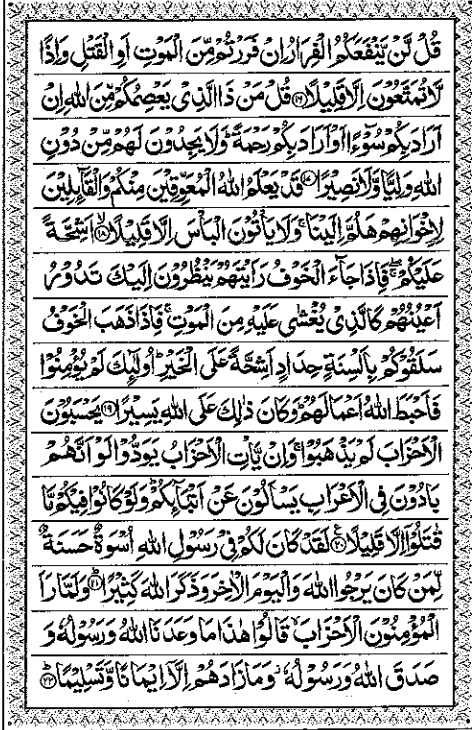 قُلْ لَّنْ يَّنْفَعَكُمُ الْفِرَارُ اِنْ فَرَرْتُمْ مِّنَ الْمَوْتِ اَوِ الْقَتْلِ وَاِذًا
لَّا تُمَتَّعُوْنَ اِلَّا قَلِيْلًا ﴿۱۶﴾ قُلْ مَنْ ذَا الَّذِىْ يَعْصِمُكُمْ مِّنَ اللّٰهِ اِنْ
اَرَادَ بِكُمْ سُوْٓءًا اَوْ اَرَادَ بِكُمْ رَحْمَةً ؕ وَلَا يَجِدُوْنَ لَهُمْ مِّنْ دُوْنِ
اللّٰهِ وَلِيًّا وَّلَا نَصِيْرًا ﴿۱۷﴾ قَدْ يَعْلَمُ اللّٰهُ الْمُعَوِّقِيْنَ مِنْكُمْ وَالْقَآئِلِيْنَ
لِاِخْوَانِهِمْ هَلُمَّ اِلَيْنَا ۚ وَلَا يَاْتُوْنَ الْبَاْسَ اِلَّا قَلِيْلًا ﴿۱۸﴾ اَشِحَّةً
عَلَيْكُمْ ۖ فَاِذَا جَآءَ الْخَوْفُ رَاَيْتَهُمْ يَنْظُرُوْنَ اِلَيْكَ تَدُوْرُ
اَعْيُنُهُمْ كَالَّذِىْ يُغْشٰى عَلَيْهِ مِنَ الْمَوْتِ ۚ فَاِذَا ذَهَبَ الْخَوْفُ
سَلَقُوْكُمْ بِاَلْسِنَةٍ حِدَادٍ اَشِحَّةً عَلَى الْخَيْرِ ؕ اُولٰٓئِكَ لَمْ يُؤْمِنُوْا
فَاَحْبَطَ اللّٰهُ اَعْمَالَهُمْ ؕ وَكَانَ ذٰلِكَ عَلَى اللّٰهِ يَسِيْرًا ﴿۱۹﴾ يَحْسَبُوْنَ
الْاَحْزَابَ لَمْ يَذْهَبُوْا ۚ وَاِنْ يَّاْتِ الْاَحْزَابُ يَوَدُّوْا لَوْ اَنَّهُمْ
بَادُوْنَ فِى الْاَعْرَابِ يَسْاَلُوْنَ عَنْ اَنْۢبَآئِكُمْ ؕ وَلَوْ كَانُوْا فِيْكُمْ مَّا
قٰتَلُوْٓا اِلَّا قَلِيْلًا ﴿۲۰﴾ لَقَدْ كَانَ لَكُمْ فِىْ رَسُوْلِ اللّٰهِ اُسْوَةٌ حَسَنَةٌ
لِّمَنْ كَانَ يَرْجُوا اللّٰهَ وَالْيَوْمَ الْاٰخِرَ وَذَكَرَ اللّٰهَ كَثِيْرًا ﴿۲۱﴾ وَلَمَّا رَاَ
الْمُؤْمِنُوْنَ الْاَحْزَابَ ۙ قَالُوْا هٰذَا مَا وَعَدَنَا اللّٰهُ وَرَسُوْلُهٗ وَ
صَدَقَ اللّٰهُ وَرَسُوْلُهٗ ۫ وَمَا زَادَهُمْ اِلَّآ اِيْمَانًا وَّتَسْلِيْمًا ﴿۲۲﴾